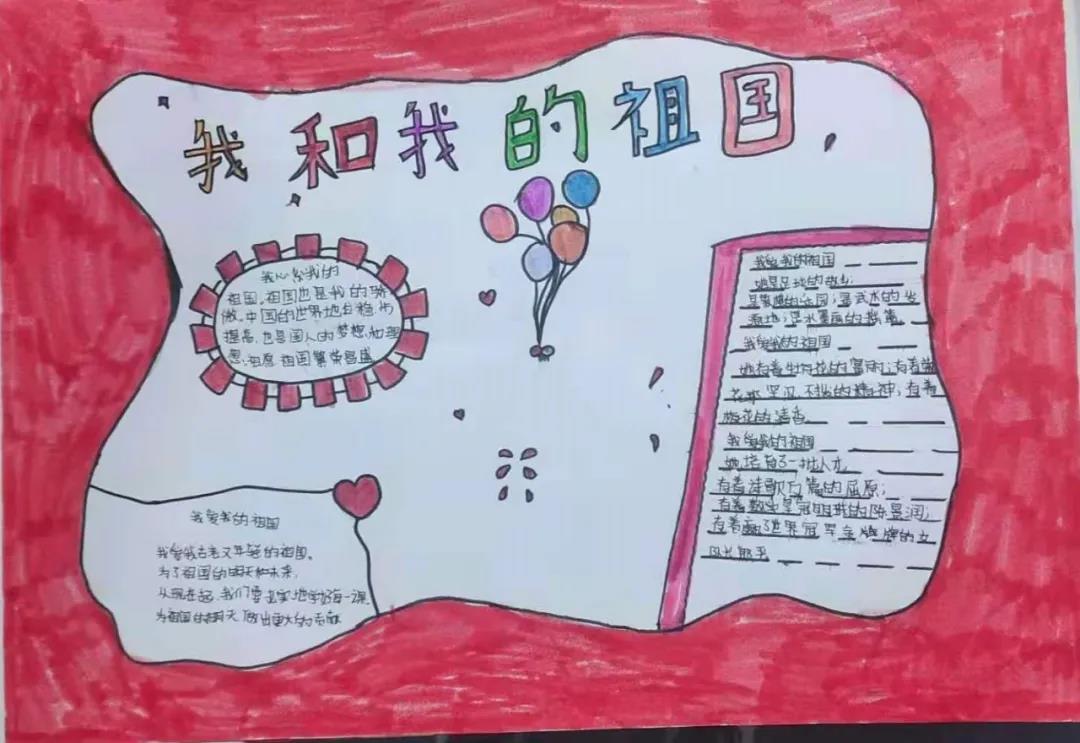 我和我的祖国
我心系我的
祖国,祖国也是我的骄
傲。中国的世界地位稳步
提高,也是国人的梦想和理
想,祖愿祖国繁荣昌盛
我爱我的祖国
我爱我古老又年轻的祖国。
为了祖国的明天和未来,
从现在起,我们要扎实地学好每一课
为祖国的明天做出重大的贡献
我爱我的祖国
她是足球的故乡;
是 的 园;是武术的发
源地;是水墨画的
我爱我的祖国
她有着牡丹花的富丽;有着
花那 不挠的精神;有着
梅花的清香
我爱我的祖国
她培育了一批人才
有着诗歌万篇的屈原;
有着数学皇冠明珠的陈景润;
有着 了世界冠军金牌牌的
队长郎平